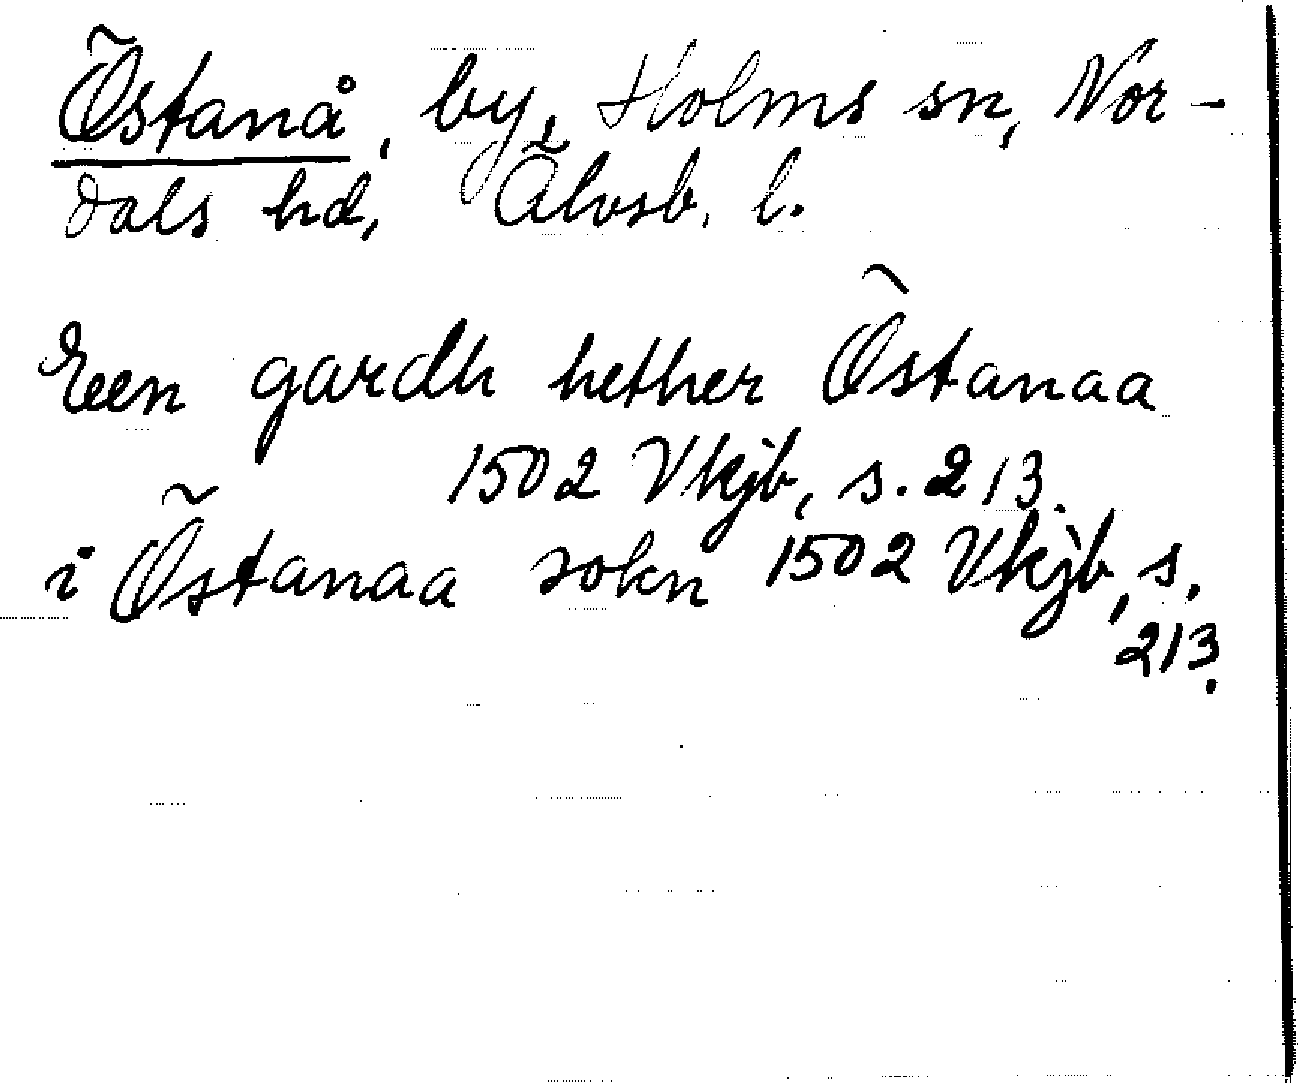 Östanå, by, Holms sn, Nor-
dals hd, Älvsb. l.
Een gardh hether Östanaa
1502 Vkjb, s. 213.
i Östanaa sokn 1502 Vkjb, s.
213.